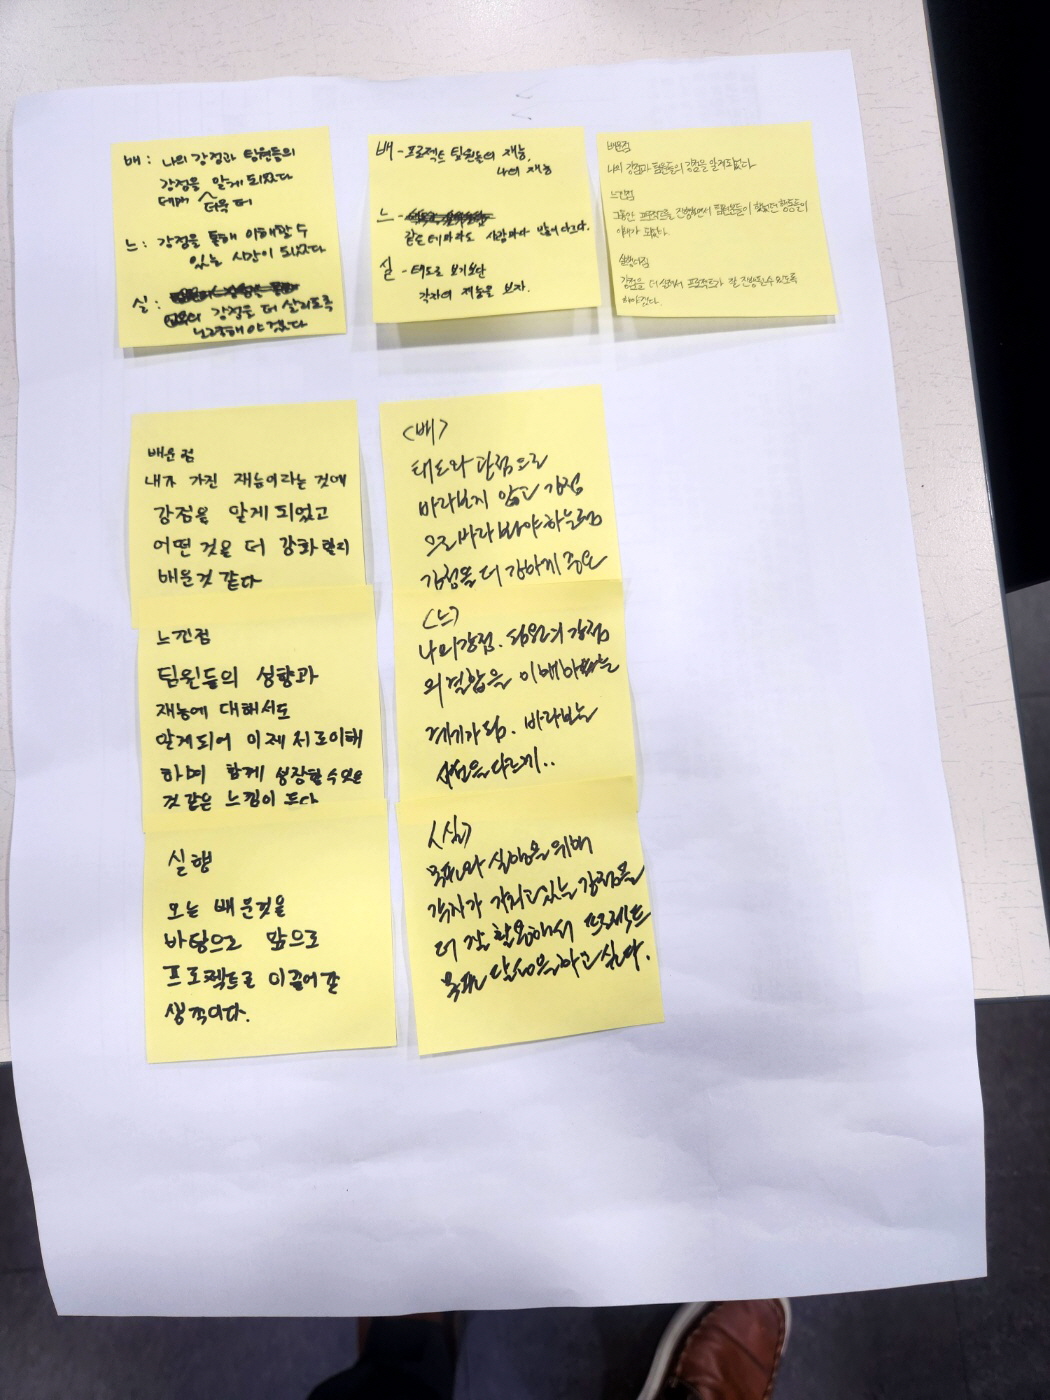 배 : 나의 강점과 팀원들의
강점을 알게 되었다
더욱 더
느 : 강점을 통해 이해할 수
있는 시간이 되었다
실 :
강점을 더 살리도록
노력해야 겠다
배 - 프로젝트 팀원들의 재능,
나의 재능
느 -
같은 테마라도 사람마다 다르다.
실 - 태도로 보기보단
각자의 재능을 보자.
배운점
나의 강점과 팀원들의 강점을 알게되었다.
느낀점
그동안 프로젝트를 진행하면서 팀원분들이 했었던 행동들이
이해가 되었다.
실행다짐
강점을 더 살려서 프로젝트가 잘 진행될 수 있도록
해야겠다.
배운점
내가 가진 재능이라는 것에
강점을 알게 되었고
어떤 것을 더 강화할지
배운것 같다
느낀점
팀원들의 성향과
재능에 대해서도
알게되어 이제 서로이해
하며 함께 성장할 수 있을
것 같은 느낌이 든다
실행
오늘 배운것을
바탕으로 앞으로
프로젝트로 이끌어갈
생각이다.
<배>
태도와 관점으로
바라보지 않고 강점
으로 바라 봐야하는
강점을 더 강하게
<느>
나의강점. 팀원의 강점
의 결합을 이해하는
계기가 됨. 바라보는
시점을 다르게..
<실>
목표와 실행을 위해
각자가 가지고 있는 강점을
더 잘 활용해서 프로젝트
목표 달성을 하고 싶다.